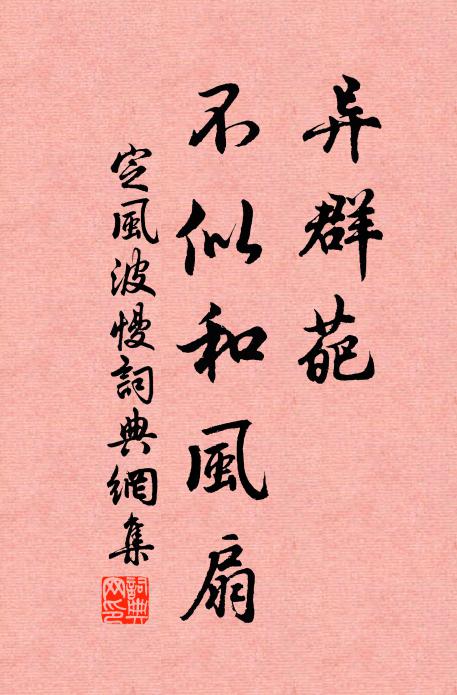 异群葩
不似和風扇
定風波慢詞典網集
詞典網印